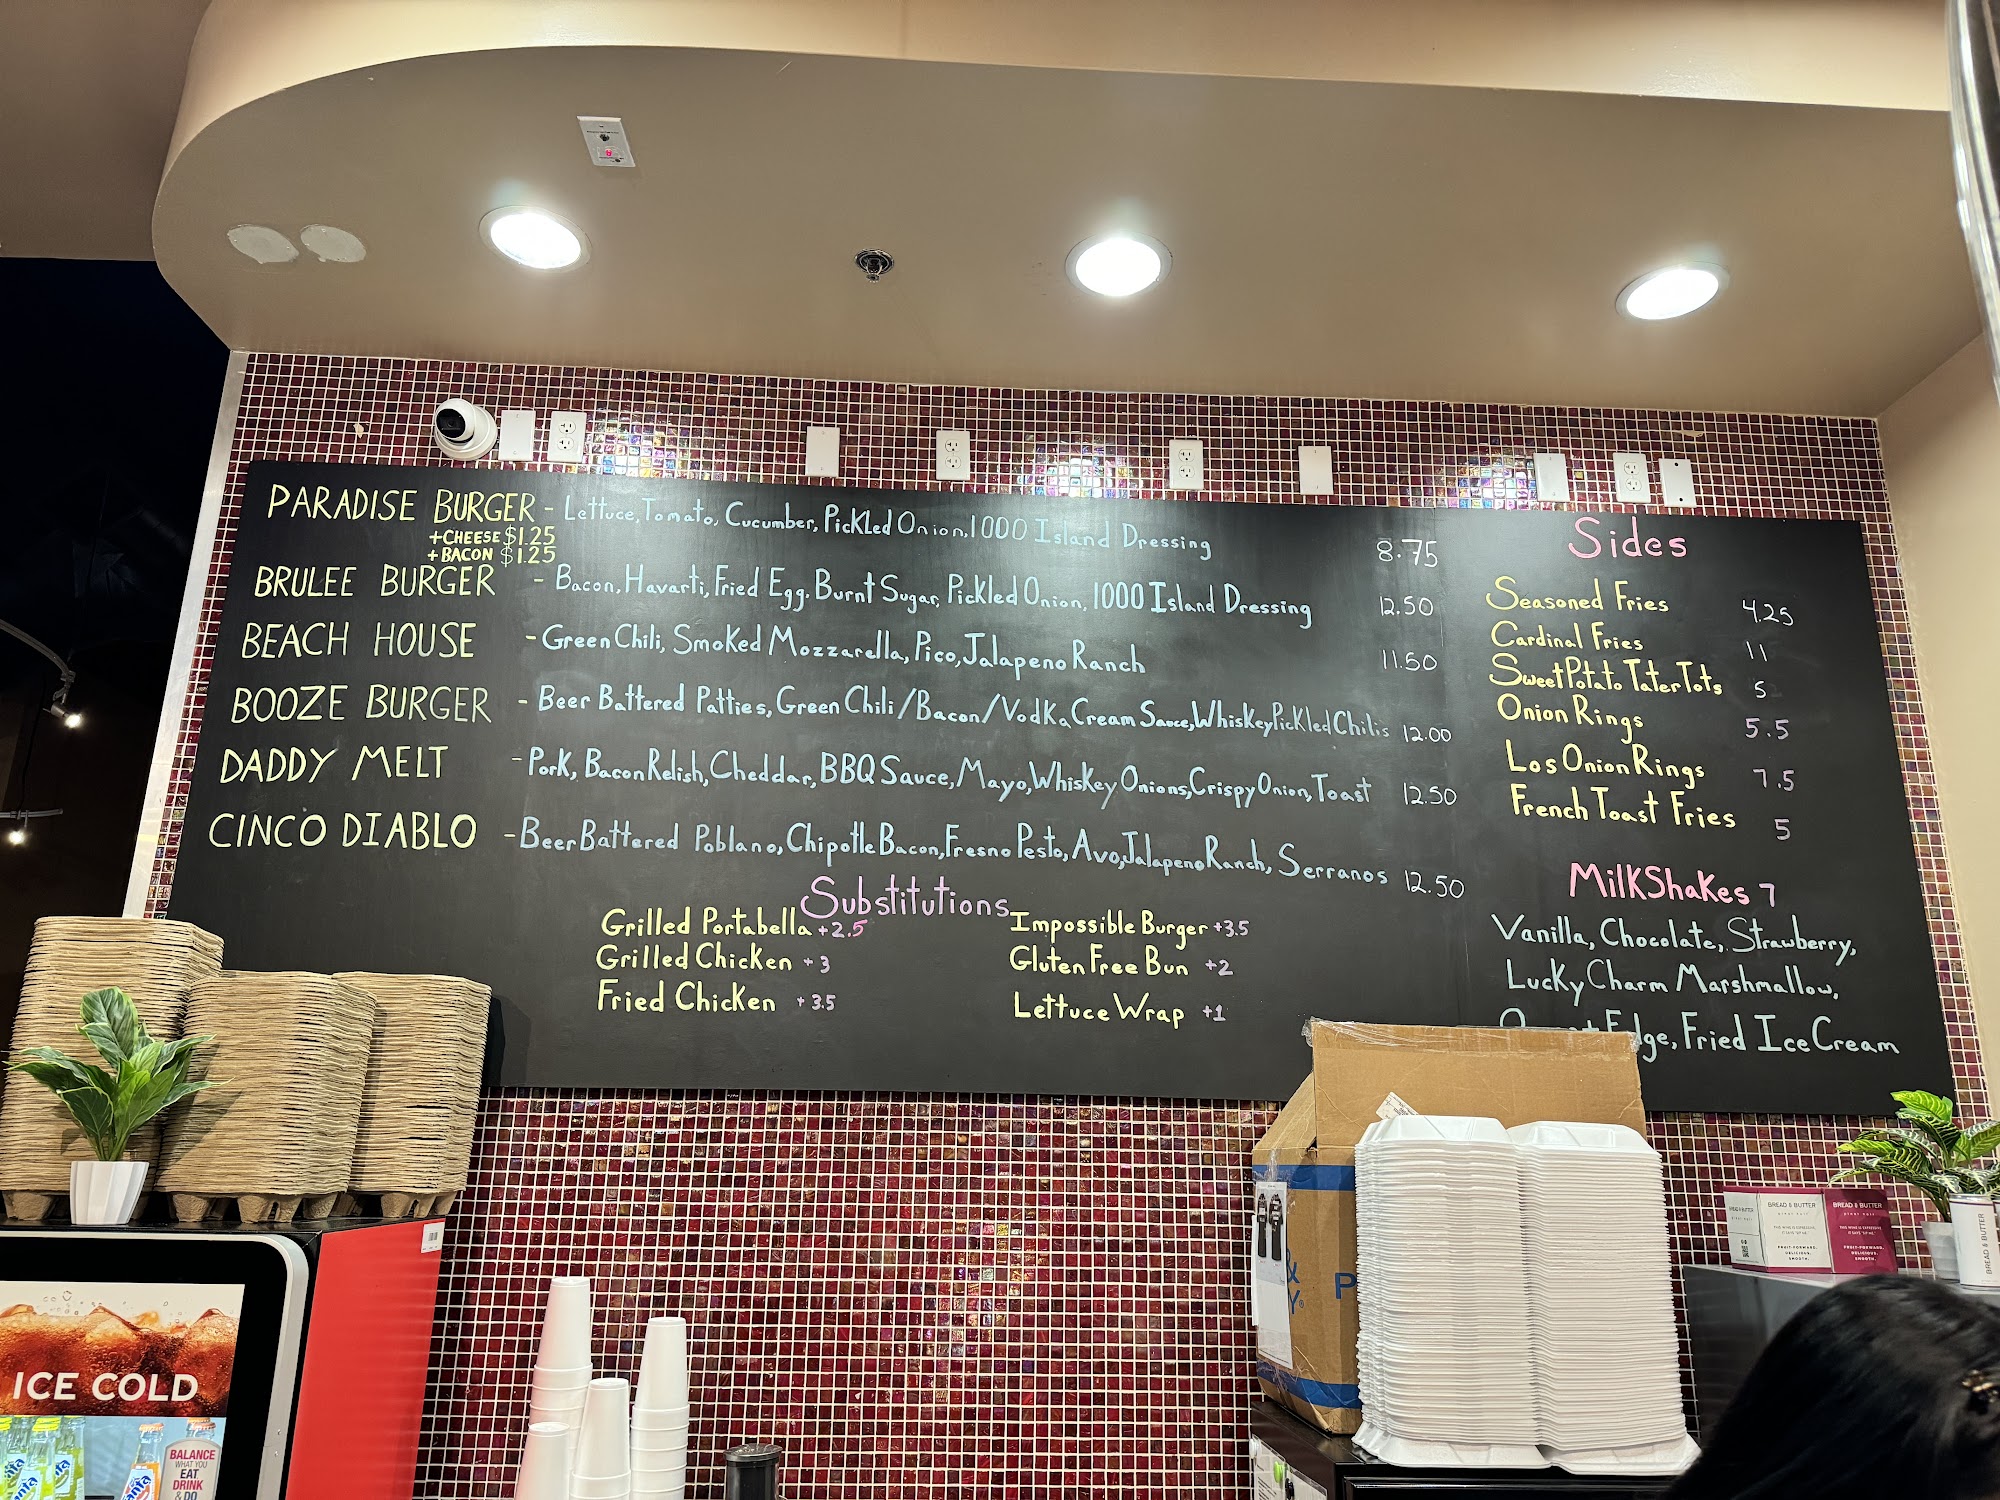 PARADISE BURGER - Lettuce, Tomato, Cucumber, Pickled Onion, 1000 Island Dressing 8.75
+CHEESE $1.25
+BACON $1.25
BRULEE BURGER - Bacon, Havarti, Fried Egg, Burnt Sugar, Pickled Onion, 1000 Island Dressing 12.50
BEACH HOUSE - Green Chili, Smoked Mozzarella, Pico, Jalapeno Ranch 11.50
BOOZE BURGER - Beer Battered Patties, Green Chili/Bacon/Vodka Cream Sauce, Whiskey Pickled Chilis 12.00
DADDY MELT - Pork, Bacon Relish, Cheddar, BBQ Sauce, Mayo, Whiskey Onions, Crispy Onion, Toast 12.50
CINCO DIABLO - Beer Battered Poblano, Chipotle Bacon, Fresno Pesto, Avo, Jalapeno Ranch, Serranos 12.50
Substitutions
Grilled Portabella +2.5
Grilled Chicken +3
Fried Chicken +3.5
Impossible Burger +3.5
Gluten Free Bun +2
Lettuce Wrap +1
Sides
Seasoned Fries 4.25
Cardinal Fries 11
Sweet Potato Tater Tots 5
Onion Rings 5.5
Los Onion Rings 7.5
French Toast Fries 5
MilkShakes 7
Vanilla, Chocolate, Strawberry,
Lucky Charm Marshmallow,
Fried Ice Cream
ICE COLD
BALANCE
WHAT YOU
EAT
DRINK
& DO
BREAD & BUTTER
BREAD & BUTTER
FRUIT-FORWARD.
DELICIOUS.
SMOOTH.
BREAD & BUTTER